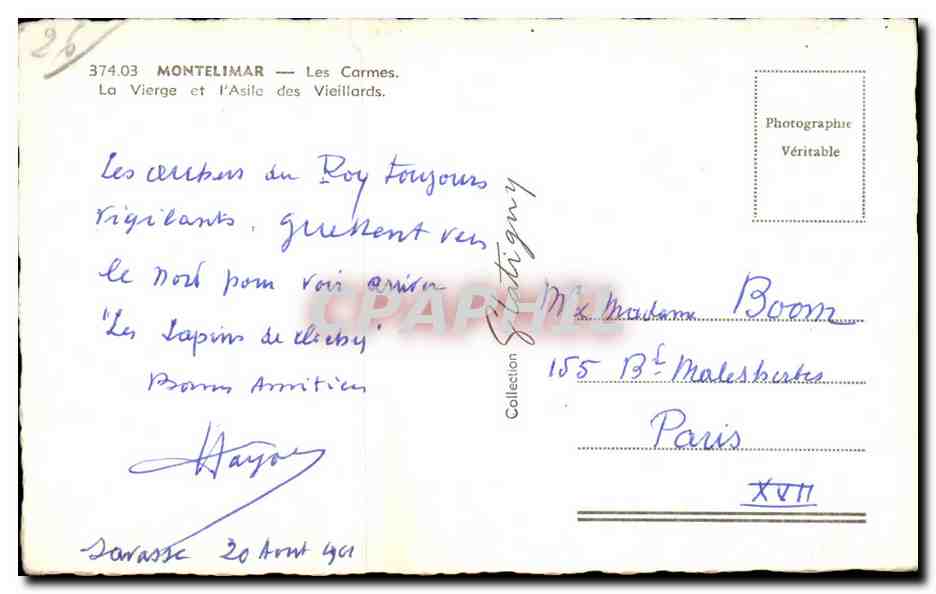 26
374.03 MONTELIMAR — Les Carmes.
La Vierge et l'Asile des Vieillards.
Photographie
Véritable
Les archers du Roy toujours
vigilants, guettent vers
le nord pour voir arriver
"Les Lapins de Clichy"
Bonnes Amitiés
Savasse 20 Aout
Collection
CPAPHIL
Mr & Madame Boom
155 Bd Malesherbes
Paris
XVII